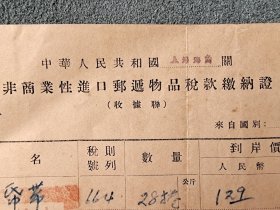 中華人民共和國 上海海關 關
非商業性進口郵遞物品稅款繳納證
(收據聯)
來自國別:
名 稅則號列 數量 到岸價
人民幣
公斤
164 139